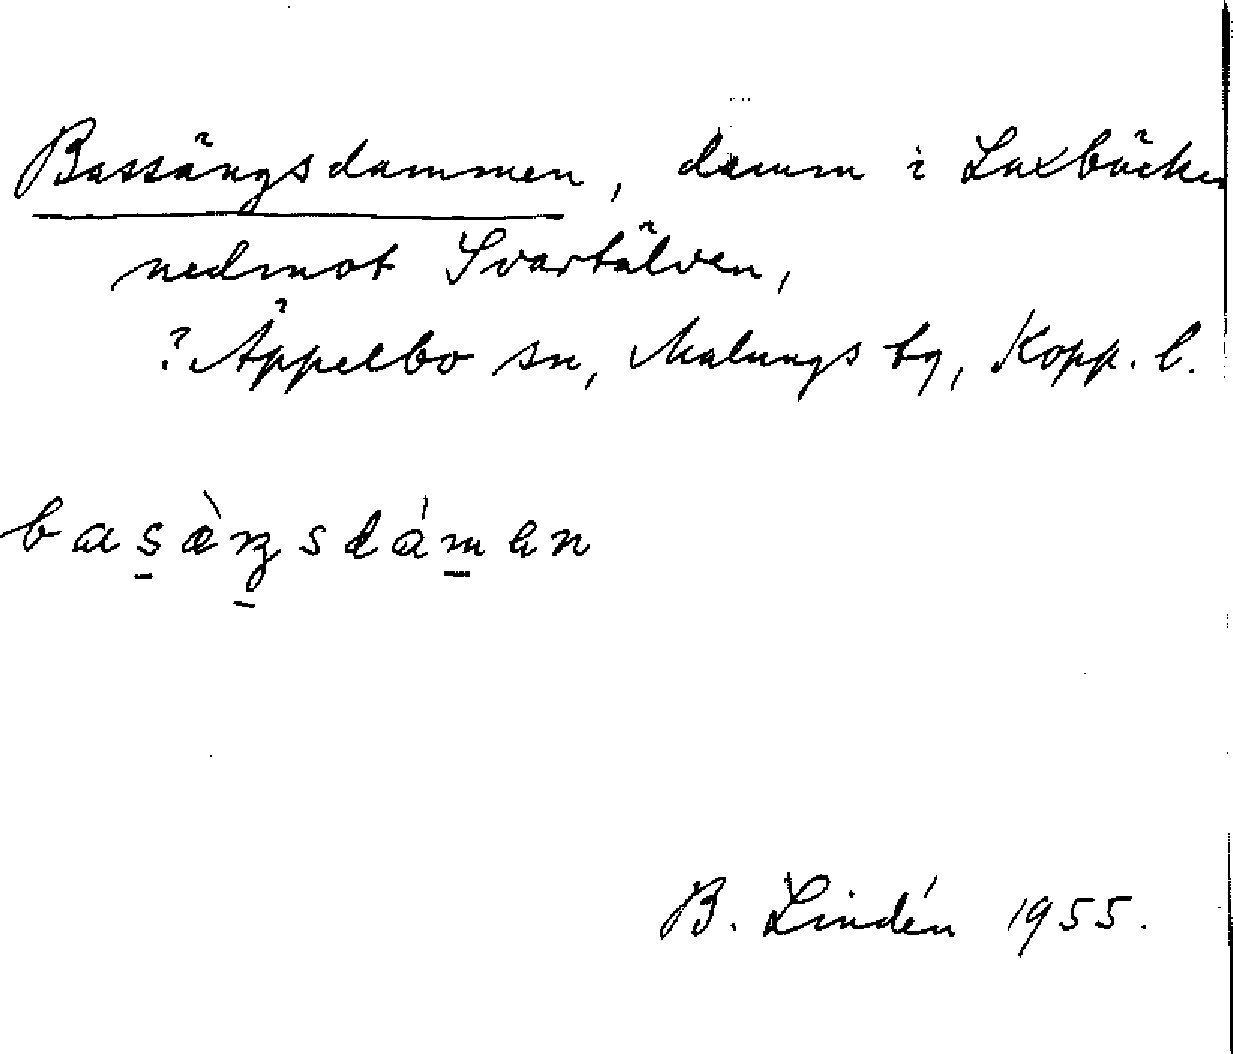 Bassängsdammen, damm i Laxbäcken
nedmot Svartälven,
? Äppelbo sn, Malungs tg, Kopp. l.
basäŋsdámen
B. Lindén 1955.